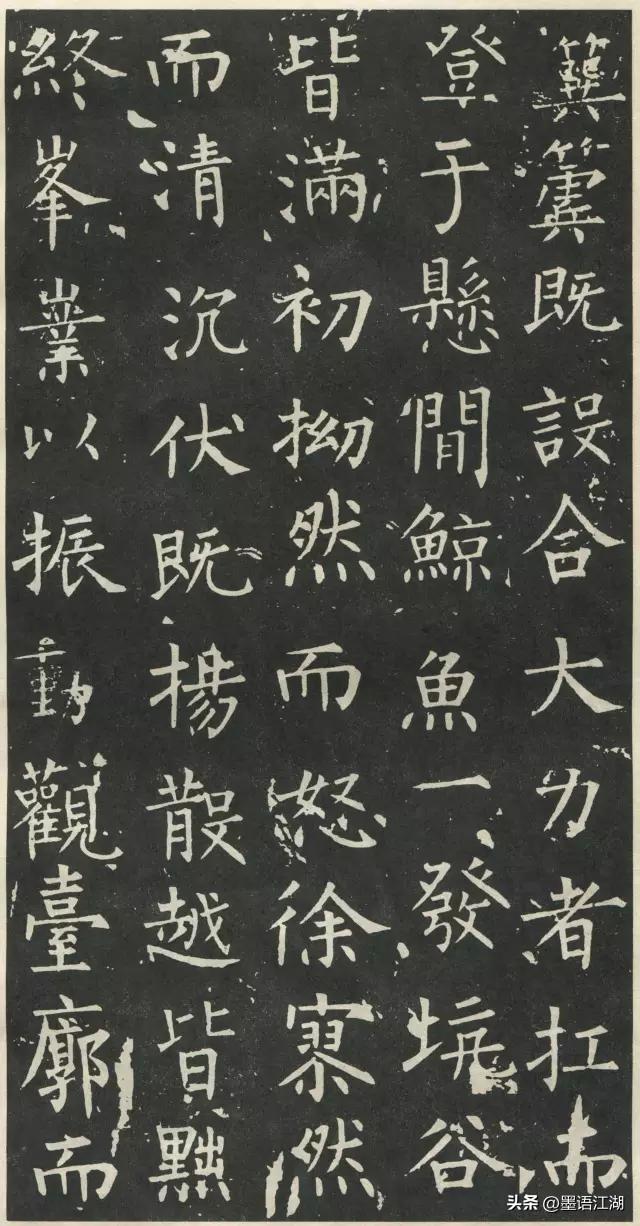 簨簴既設合大力者扛而
登于懸間鯨魚一發坑谷
皆滿初拗然而怒徐寥然
而清沉伏既揚散越皆黜
終峯嶪以振動觀臺廓而
头条 @墨语江湖